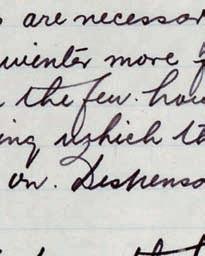 are necessar
winter more
the few. hou
ing which th
on. Dispensa